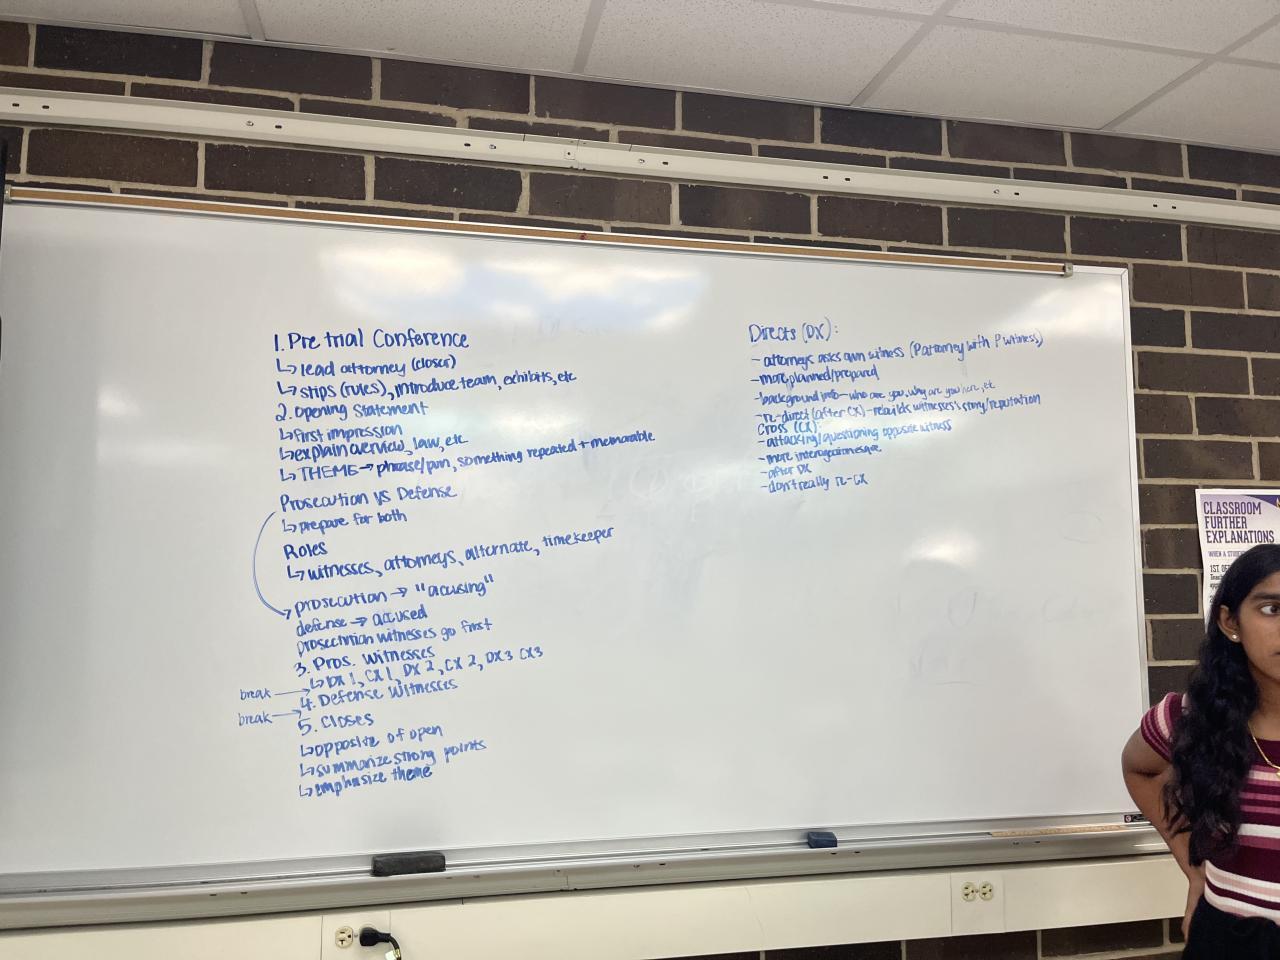 1. Pre trial Conference
↳ lead attorney (closer)
↳ stips (rules), introduce team, exhibits, etc
2. Opening Statement
↳ first impression
↳ explain overview, law, etc
↳ THEME → phrase/pun, something repeated + memorable
Prosecution vs Defense
↳ prepare for both
Roles
↳ witnesses, attorneys, alternate, timekeeper
prosecution → "accusing"
defense → accused
prosecution witnesses go first
3. Pros. Witnesses
↳ DX 1, CX 1, DX 2, CX 2, DX 3 CX3
break →
4. Defense Witnesses
break →
5. Closes
↳ opposite of open
↳ summarize strong points
↳ emphasize theme
Directs (DX):
- attorneys asks own witness (P attorney with P witness)
- more planned/prepared
- background info - who are you, why are you here, etc
- re-direct (after CX) - rebuilds witnesses's story/reputation
Cross (CX):
- attacking/questioning opposite witness
- more interrogationesque
- after DX
- don't really re-CX
CLASSROOM
FURTHER
EXPLANATIONS
WHEN A
1ST